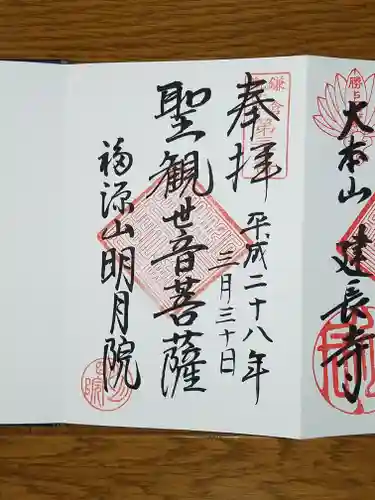 大本山
建長寺
奉拝
平成二十八年
三月三十日
聖観世音菩薩
福源山明月院